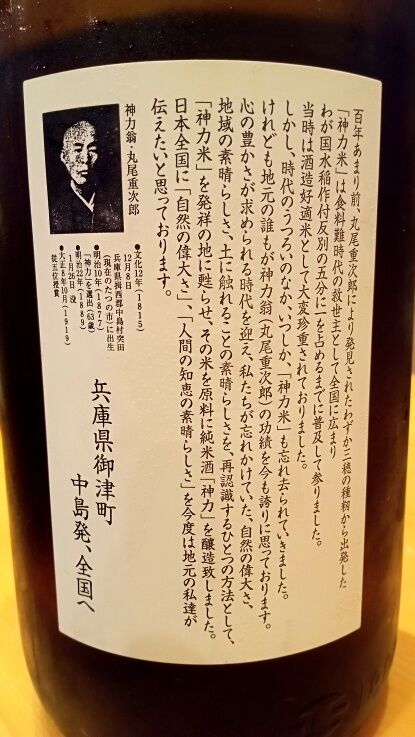 百年あまり前、丸尾重次郎により発見されたわずか三穂の種籾から出発した
「神力米」は食料難時代の救世主として全国に広まり
わが国水稲作付反別の五分に一を占めるまでに普及して参りました。
当時は酒造好適米として大変珍重されておりました。
しかし、時代のうつろいのなか、いつしか、「神力米」も忘れ去られていきました。
けれども地元の誰もが神力翁(丸尾重次郎)の功績を今も誇りに思っております。
心の豊かさが求められる時代を迎え、私たちが忘れかけていた、自然の偉大さ、
地域の素晴らしさ、土に触れることの素晴らしさを、再認識するひとつの方法として、
「神力米」を発祥の地に甦らせ、その米を原料に純米酒「神力」を醸造致しました。
日本全国に「自然の偉大さ」、「人間の知恵の素晴らしさ」を今度は地元の私達が
伝えたいと思っております。
神力翁・丸尾重次郎
●文化12年(1815)
12月8日
兵庫県揖西郡中島村突田
(現在のたつの市)に出生
●明治10年(1877)
「神力」を選出(63歳)
●明治22年(1889)
1月26日 没
●大正8年10月(1919)
従五位授賞
兵庫県御津町
中島発、全国へ